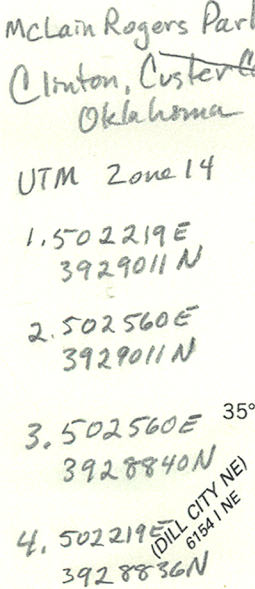 McLain Rogers Park
Clinton, Custer Co
Oklahoma
UTM Zone 14
1. 502219E
3929011N
2. 502560E
3929011N
3. 502560E
3928840N
35°
4. 502219E
3928836N
(DILL CITY NE)
6154 I NE